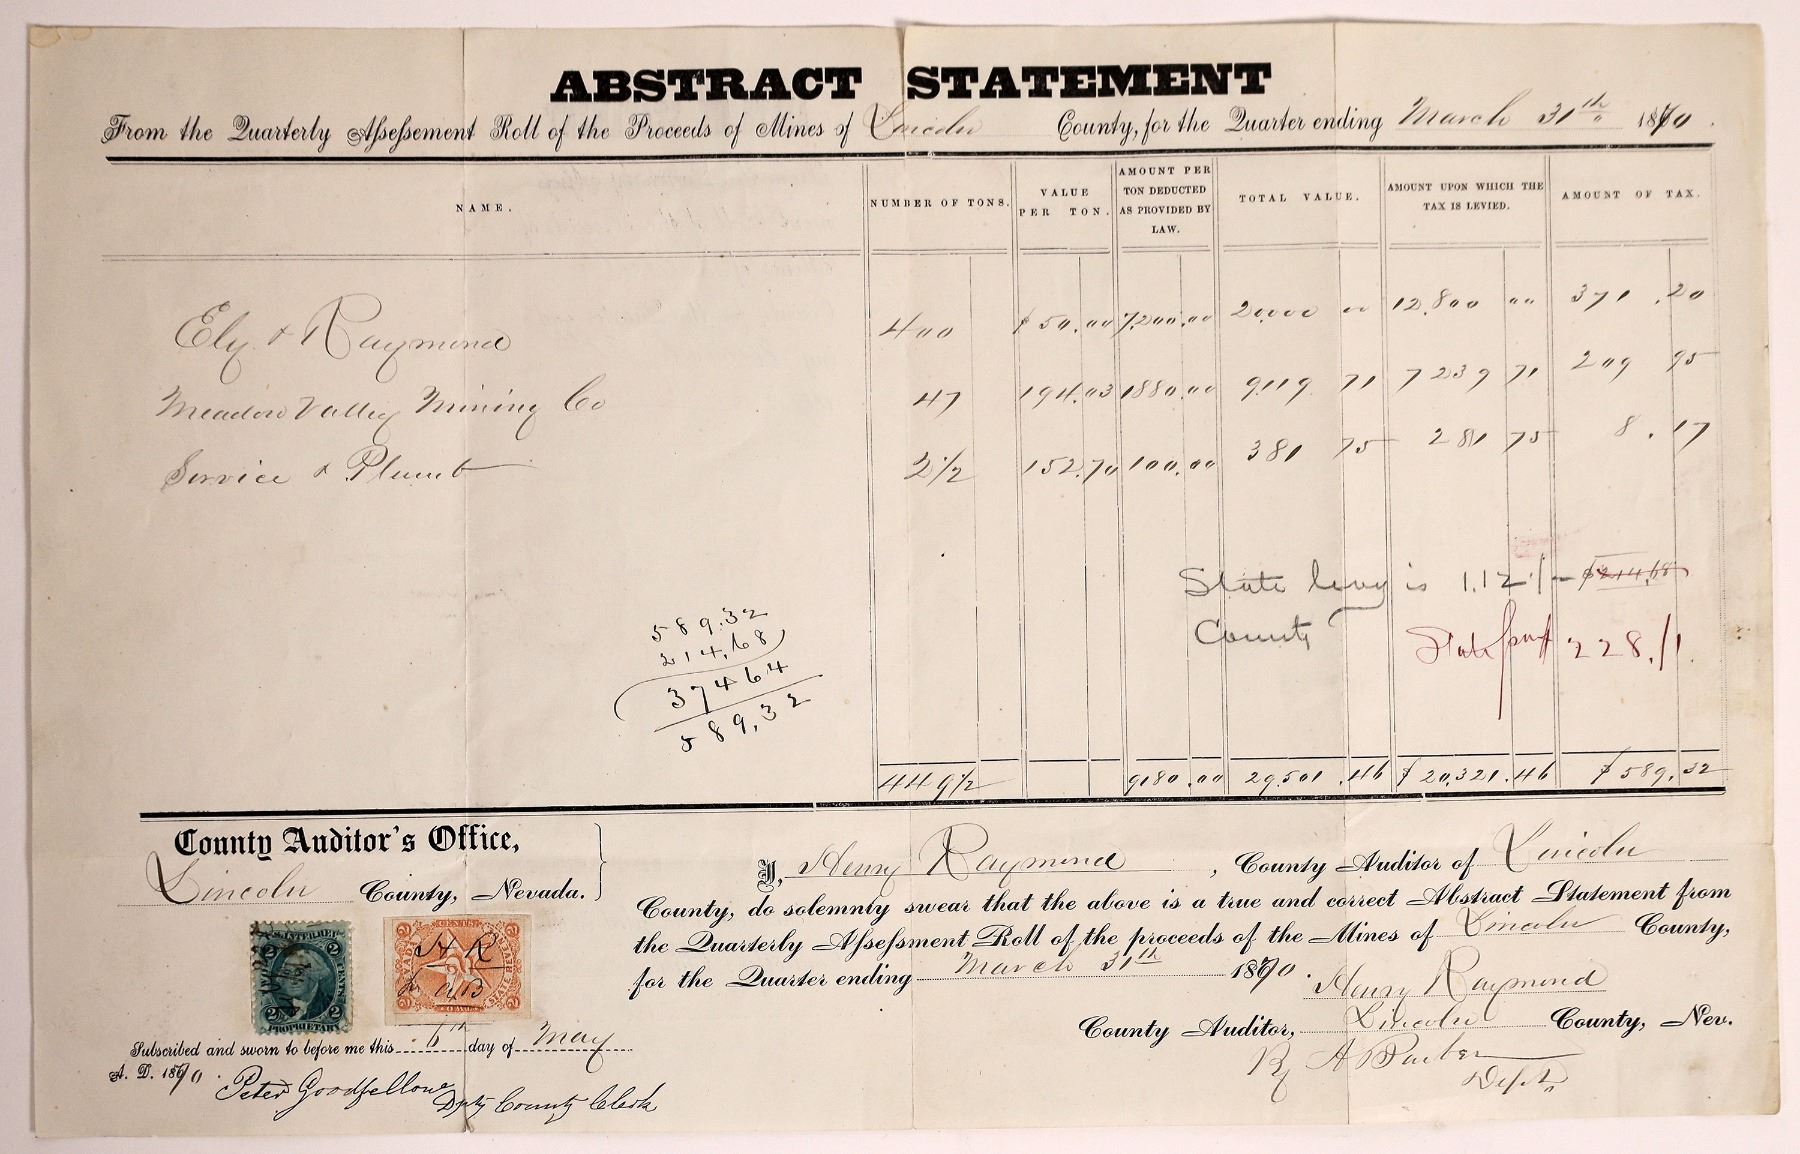 ABSTRACT STATEMENT
From the Quarterly Assessment Roll of the Proceeds of Mines of Lincoln County, for the Quarter ending March 31th 1870.
NAME. NUMBER OF TONS. VALUE PER TON. AMOUNT PER TON DEDUCTED AS PROVIDED BY LAW. TOTAL VALUE. AMOUNT UPON WHICH THE TAX IS LEVIED. AMOUNT OF TAX.
Ely & Raymond 400 $50.00 7,200.00 20,000 00 12,800 00 371.20
Meadow Valley Mining Co 47 194.03 1880.00 9119 71 7239 71 209 95
Service & Plumb 2 1/2 152.70 100.00 381 75 281 75 8.17
State levy is 1.12 $214.68
County State 228.11
589.32
214.68
374 64
589,32
449 1/2 9180.00 29,501.46 $20,321.46 $589.32
County Auditor's Office,
Lincoln County, Nevada.
I, Henry Raymond, County Auditor of Lincoln
County, do solemnly swear that the above is a true and correct Abstract Statement from
the Quarterly Assessment Roll of the proceeds of the Mines of Lincoln County,
for the Quarter ending March 31th 1870.
Henry Raymond
County Auditor, Lincoln County, Nev.
By A Barber
Depty
U.S. INTER. REV.
2 2
CENTS
PROPRIETARY
NEVADA
2 2
H R
A B
Subscribed and sworn to before me this 6th day of May
A. D. 1870.
Peter Goodfellow
Dpty County Clerk